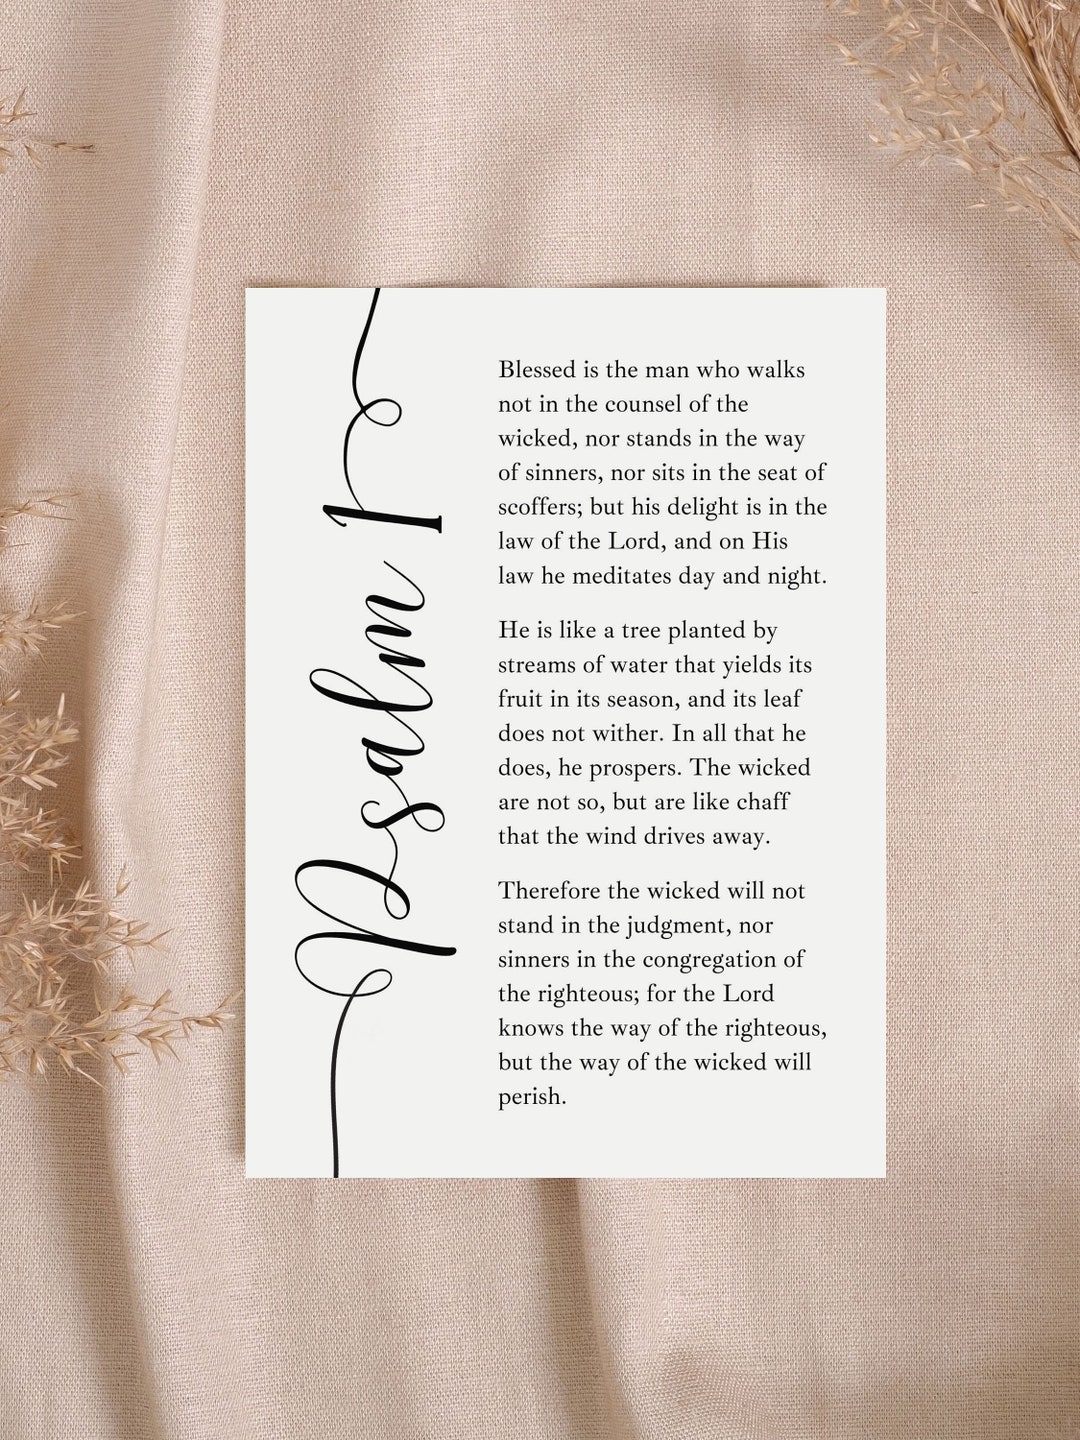 Psalm 1
Blessed is the man who walks
not in the counsel of the
wicked, nor stands in the way
of sinners, nor sits in the seat of
scoffers; but his delight is in the
law of the Lord, and on His
law he meditates day and night.
He is like a tree planted by
streams of water that yields its
fruit in its season, and its leaf
does not wither. In all that he
does, he prospers. The wicked
are not so, but are like chaff
that the wind drives away.
Therefore the wicked will not
stand in the judgment, nor
sinners in the congregation of
the righteous; for the Lord
knows the way of the righteous,
but the way of the wicked will
perish.